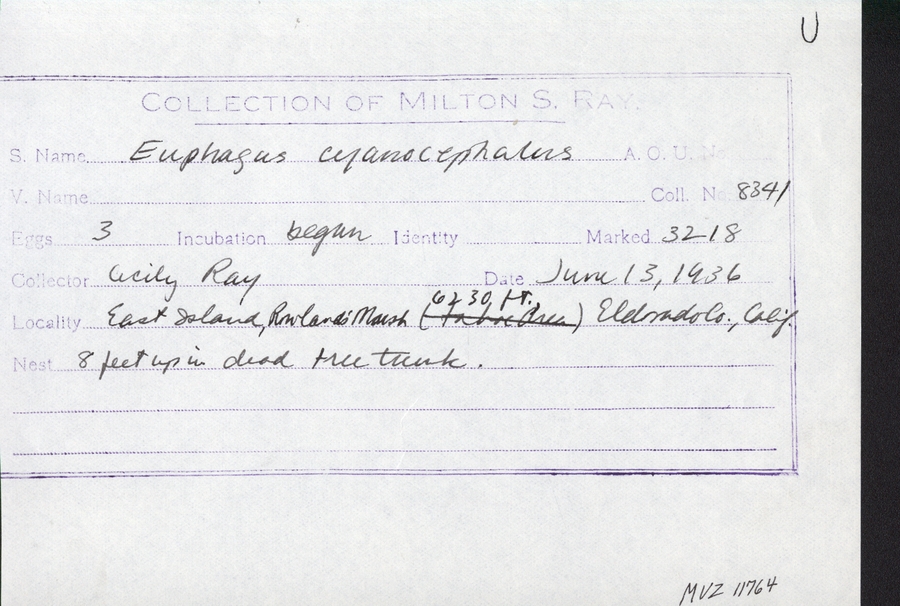 U
COLLECTION OF MILTON S. RAY.
S. Name Euphagus cyanocephalus A. O. U. No
V. Name Coll. No 8341
Eggs 3 Incubation begun Identity Marked 3218
Collector Cecily Ray Date June 13, 1936
6230 ft.
Locality East Island, Rowlands Marsh (Tahoe Area) Eldorado Co., Calif.
Nest 8 feet up in dead tree trunk.
MVZ 11764